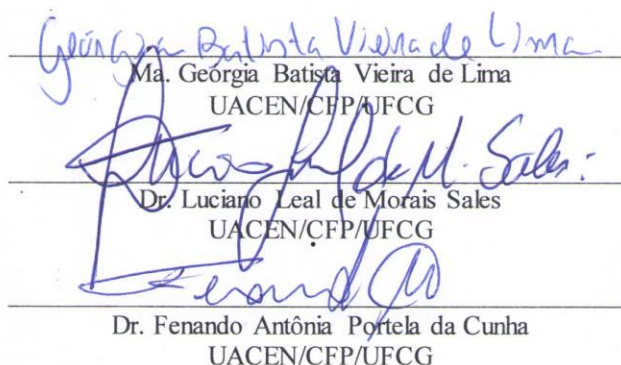 Geórgia Batista Vieira de Lima
Ma. Geórgia Batista Vieira de Lima
UACEN/CFP/UFCG
Luciano Leal de M. Sales
Dr. Luciano Leal de Morais Sales
UACEN/CFP/UFCG
Fernando
Dr. Fenando Antônia Portela da Cunha
UACEN/CFP/UFCG